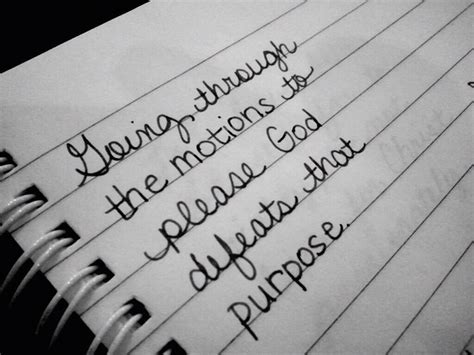 Going through
the motions to
please God
defeats that
purpose.